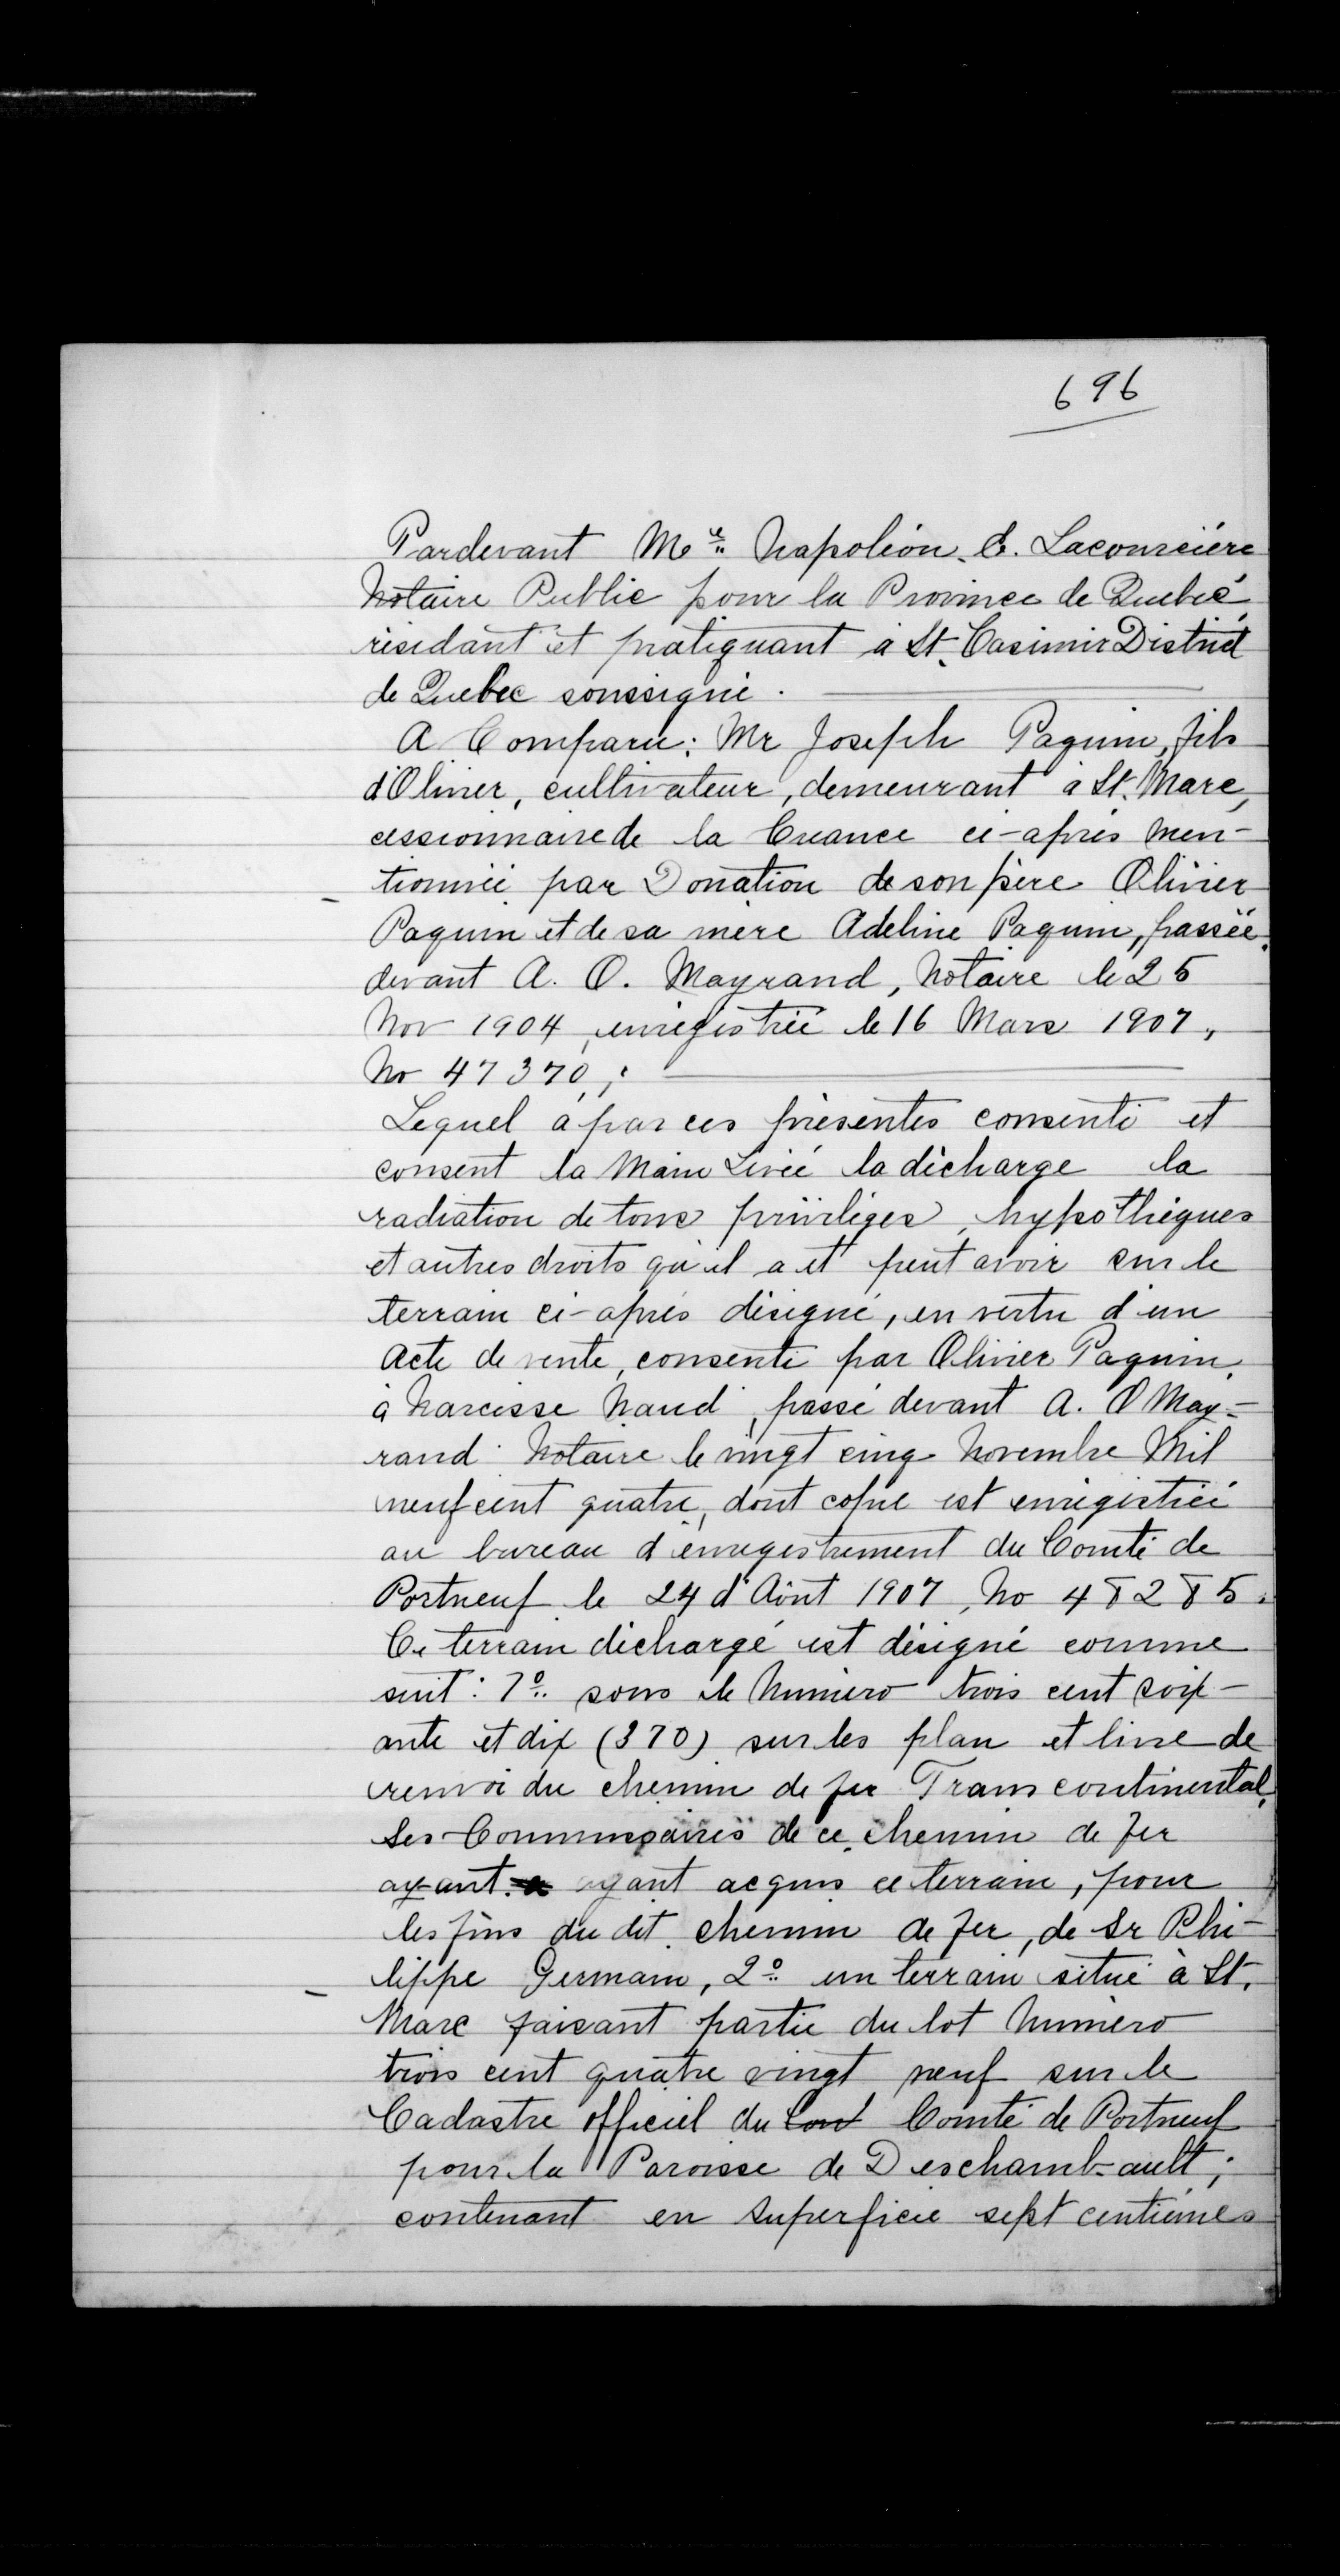 696
Pardevant Me. Napoléon. E. Lacoursière
Notaire Public pour la Province de Quebec
résidant et pratiquant à St. Casimir District
de Quebec soussigné.
A Comparu: Mr Joseph Paquin, fils
d'Olivier, cultivateur, demeurant à St. Marc,
cessionnaire de la Créance ci-après men-
tionnée par Donation de son père Olivier
Paquin et de sa mère Adeline Paquin, passée
devant A. O. Mayrand, Notaire le 25
Nov 1904, enregistrée le 16 Mars 1907,
No 47370,;
Lequel a par ces présentes consenti et
consent la Main Livée la décharge la
radiation de tous privilèges, hypothèques
et autres droits qu'il a et peut avoir sur le
terrain ci-après désigné, en vertu d'un
Acte de vente, consenti par Olivier Paquin,
à Narcisse Naud, passé devant A. O May-
rand Notaire le vingt cinq Novembre Mil
neuf cent quatre, dont copie est enregistrée
au bureau d'enregistrement du Comté de
Portneuf le 24 d'Août 1907, No 48285.
Ce terrain déchargé est désigné comme
suit: 1o. sous le Numéro trois cent soix-
ante et dix (370) sur les plan et livre de
renvoi du chemin de fer Transcontinental,
Les Commissaires de ce chemin de fer
ayant ayant acquis ce terrain, pour
les fins du dit chemin de fer, de Sr Phi-
lippe Germain, 2o. un terrain situé à St.
Marc faisant partie du lot Numéro
trois cent quatre vingt neuf sur le
Cadastre officiel du Cont Comté de Portneuf
pour la Paroisse de Deschamb-ault;
contenant en superficie sept centièmes